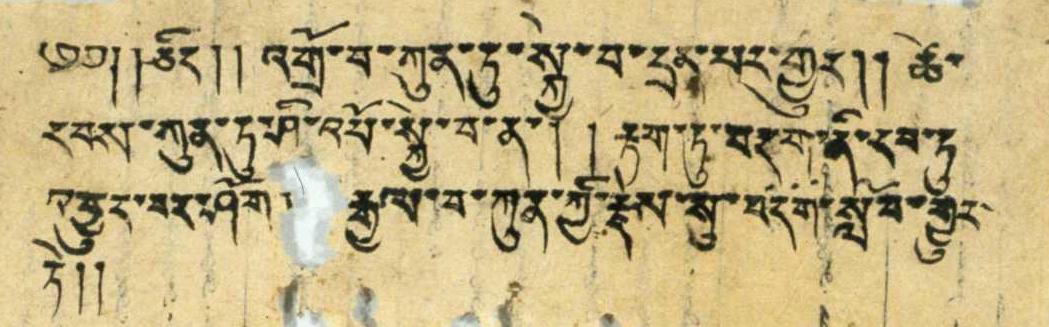 ༄༅། །ཅིང་། །འགྲོ་བ་ཀུན་ཏུ་སྐྱེ་བ་དྲན་པར་གྱུར། །ཚེ་
རབས་ཀུན་ཏུ་ཤི་འཕོ་སྐྱེ་བ་ན། །རྟག་ཏུ་བདག་ནི་རབ་ཏུ་
འབྱུང་བར་ཤོག །རྒྱལ་བ་ཀུན་གྱི་རྗེས་སུ་བདག་སློབ་གྱུར་
ཏེ། །